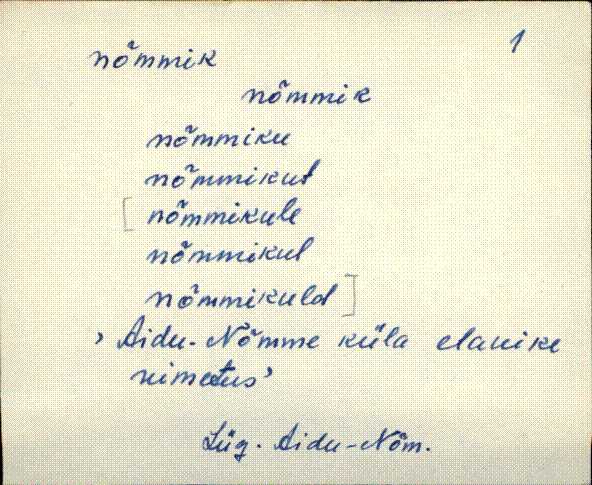 1
nõmmik
nõmmik
nõmmiku
nõmmikut
[ nõmmikule
nõmmikul
nõmmikuld ]
, Aidu-Nõmme küla elanike
nimetus'
Lüg. Aidu-Nõm.